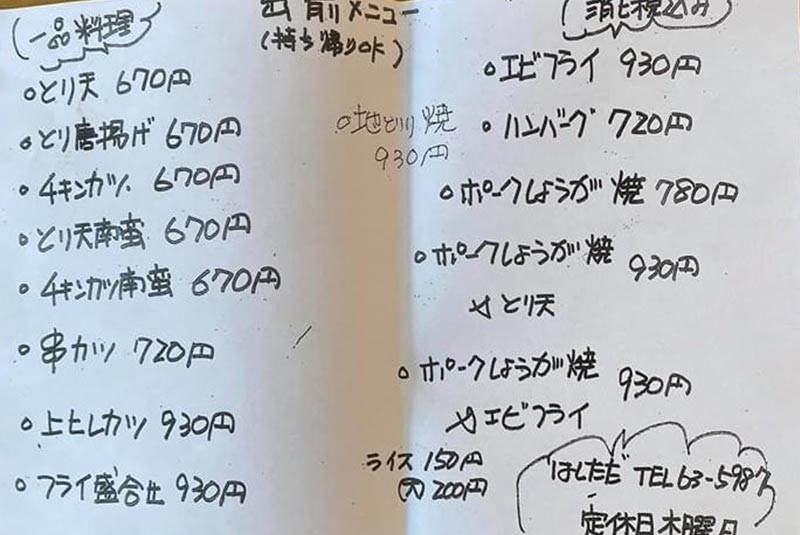 一品料理
出前メニュー
(持ち帰りOK)
消ヒ税込み
○とり天 670円
○とり唐揚げ 670円
○チキンカツ 670円
○とり天南蛮 670円
○チキンカツ南蛮 670円
○串カツ 720円
○上ヒレカツ 930円
○フライ盛合せ 930円
○地とり焼
930円
○エビフライ 930円
○ハンバーグ 720円
○ポークしょうが焼 780円
○ポークしょうが焼 930円
とり天
○ポークしょうが焼 930円
エビフライ
ライス 150円
(大) 200円
はしだ TEL63-5987
定休日木曜日